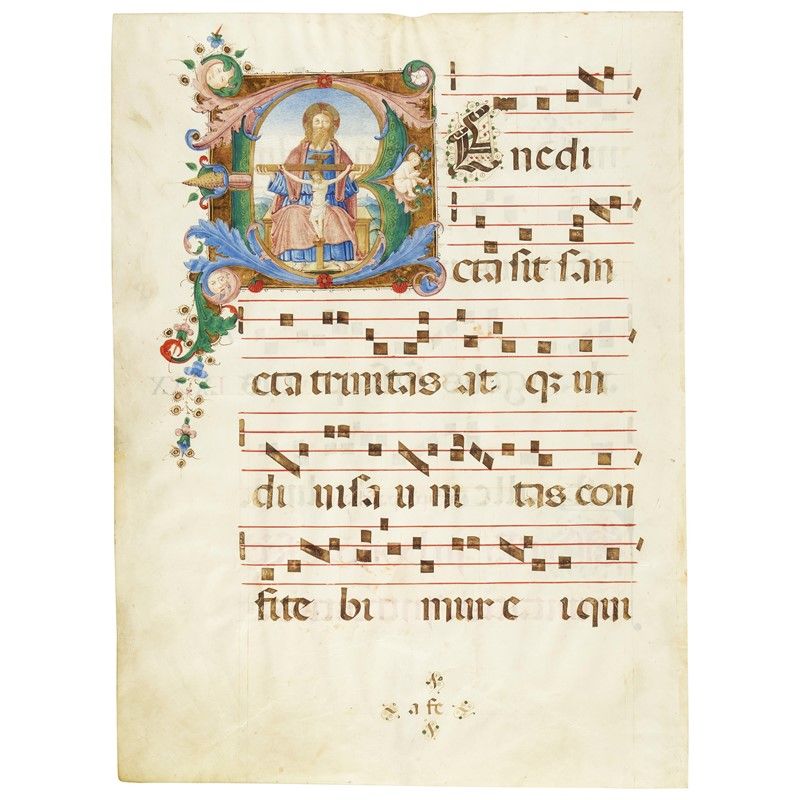 BEnedi
cta ſit ſan
cta trinitas at qꝫ in
di uiſa u ni tas con
fite bi mur e i qui
a fe